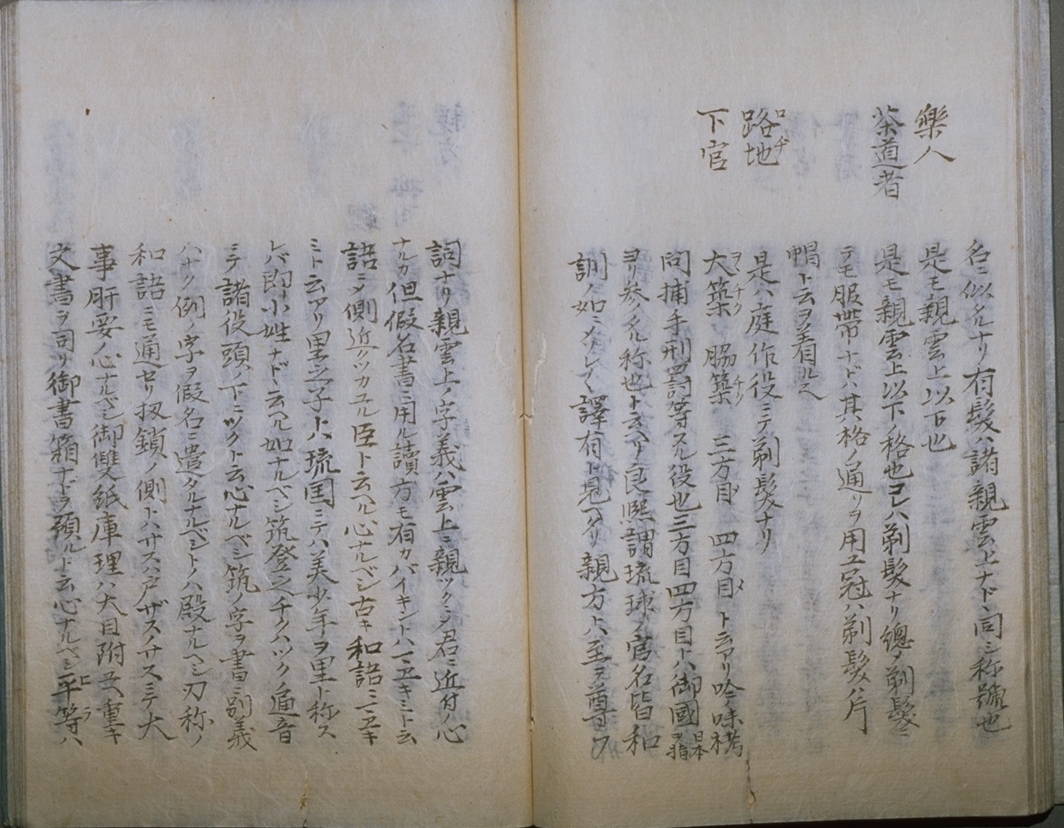 名ニ似タルナリ有髪ハ諸親雲上ナドヽ同シ称號也
樂人
是モ親雲上以下也
茶道者
是モ親雲上以下ノ格也コレハ剃髪ナリ總テ剃髪
テモ服帯ナドハ其格ノ通リヲ用エ冠ハ剃髪ハ片
帽ト云ヲ着ルス
路地
ロヂ
是ハ庭作役ニテ剃髪ナリ
下官
大築 脇築 三方目 四方目 ト云アリ吟味構
問捕手刑罰等スル役也三方目四方目トハ御國日本ヲ指
ヨリ参タル称也ト云ヘリ良熙謂琉球ノ官名皆和
訓ノ如ニメ 譯有ト見ヘタリ親方トハ至テ尊フ
詞ナリ親雲上ノ字義ハ雲上ニ親ツクシテ君ニ近付ノ心
ナルカ但假名書ニ用ル讀方モ有カバイキントハ云キミト云
語ニメ側近ツカエル臣ト云ヘル心ナルベシ古キ和語ニ云キ
ミト云アリ里之子トハ琉国ニテハ美少年ヲ里ト称ス
レバ即小姓ナドヽ云ヘル如ナルベシ筑登之チクムツク通音
ニテ諸役頭ノ下ニツクト云心ナルベシ筑ノ字ヲ書ニ別義
ハナク例ノ字ヲ假名ニ遣タルナルベシトノハ殿ナルヘシ刀称ノ
和語ニモ通セリ扨鎖ノ側トハサスハ戸ザスノサスニテ大
事肝要ノ心ナルベシ御雙紙庫理ハ大目附云重キ
文書ヲ司リ御書箱ナドヲ預ルト云心ナルベシ平等ハ